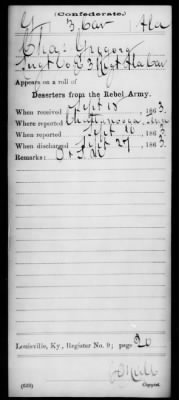 (Confederate.)
G 3 Cav Ala
Chas Gregory
Sergt Co G, 3 Regt Ala Cav
Appears on a roll of
Deserters from the Rebel Army.
When received Sept 18, 1863.
Where reported Chattanooga, Tenn
When reported Sept 18, 1863.
When discharged Sept 27, 1863.
Remarks:
Louisville, Ky., Register No. 9; page 20
(639) Copyist.